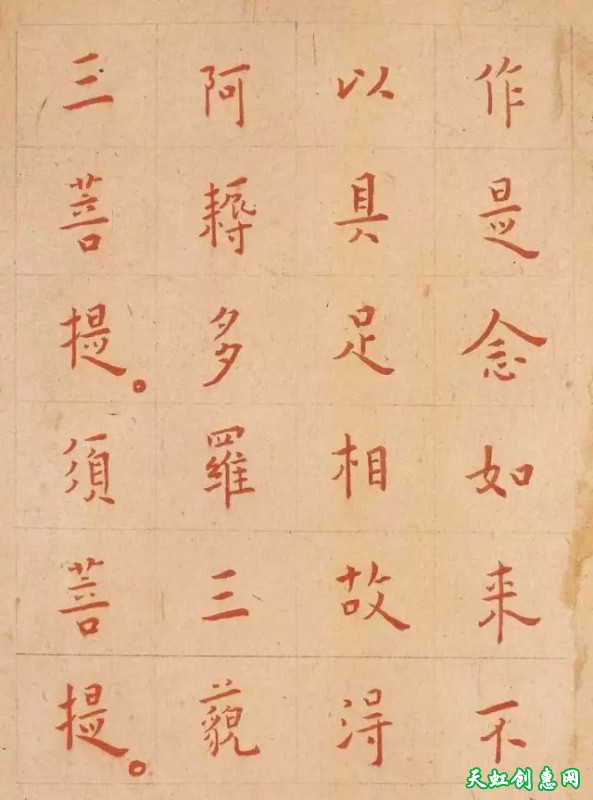 作是念如来不
以具足相故淂
阿耨多羅三藐
三菩提。須
菩提。
天虹创惠网